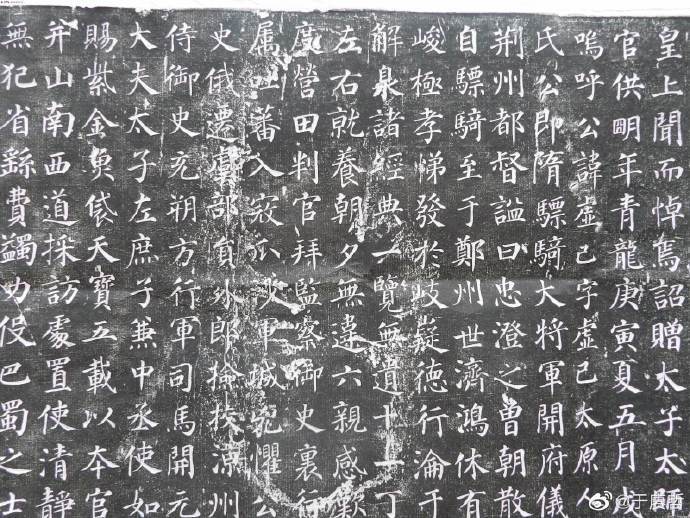 皇上聞而悼焉詔贈太子太師
官供明年青龍庚寅夏五月戊
嗚呼公諱虛己字虛己太原人
氏公即隋驃騎大將軍開府儀
荊州都督謚曰忠澄之曾朝散
自驃騎至于鄭州世濟鴻休有
峻極孝悌發於岐嶷德行淪于
解諸經典一覽無遺十一丁
左右就養朝夕無違六親感歎
度營田判官拜監察御史裏行
属吐蕃入寇瓜沙軍城兇懼公
史俄遷虞部員外郎撿校涼州
侍御史充朔方行軍司馬開元
大夫太子左庶子兼中丞使如
賜紫金魚袋天寶五載以本官
并山南西道採訪處置使清靜
無犯省繇費蠲力役巴蜀之士